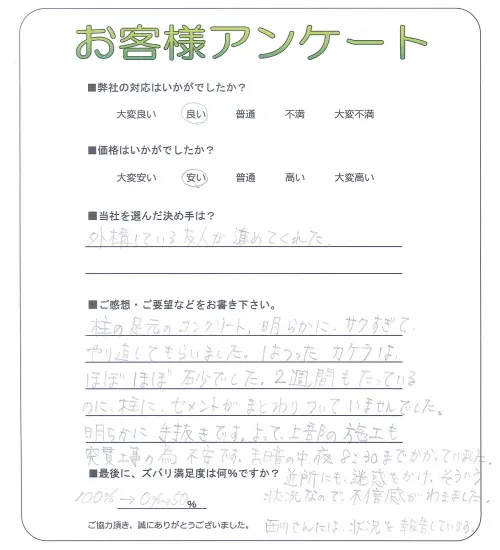 お客様アンケート
■弊社の対応はいかがでしたか？
大変良い 良い 普通 不満 大変不満
■価格はいかがでしたか？
大変安い 安い 普通 高い 大変高い
■当社を選んだ決め手は？
外構している友人が進めてくれた
■ご感想・ご要望などをお書き下さい。
柱の足元のコンクリート、明らかに、サクすぎて、
やり直してもらいました。はつった カケラは、
ほぼほぼ 石少でした。2週間もたっている
のに、柱に、セメントが まとわりついていませんでした。
明らかに 手抜きです。よって、上部の施工も
突貫工事の為 不安です。真暗の中、夜 8:30までかかっていました。
■最後に、ズバリ満足度は何％ですか？
近所にも、迷惑をかけ、そういう
100％→0％→50 ％
状況なので、不信感がわきました。
ご協力頂き、誠にありがとうございました。
西川さんには、状況を報告しています。